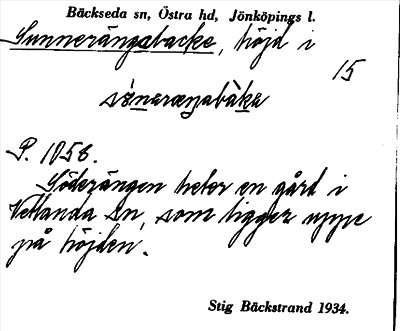 Bäckseda sn, Östra hd, Jönköpings l.
Sunnerängsbacke, höjd i
15
P. 1058.
Söderängen heter en gård i
Vetlanda sn, som ligger uppe
på höjden.
Stig Bäckstrand 1934.